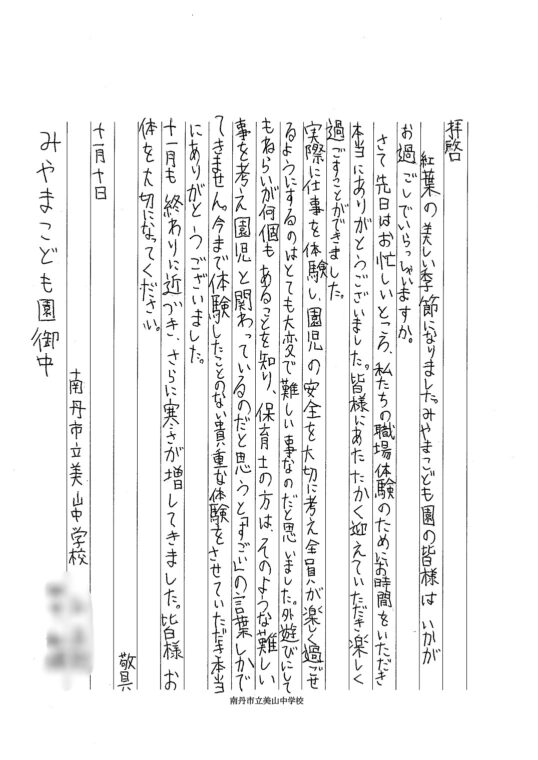 拝啓
紅葉の美しい季節になりました。みやまこども園の皆様はいかが
お過ごしでいらっしゃいますか。
さて先日はお忙しいところ、私たちの職場体験のためにお時間をいただき
本当にありがとうございました。皆様にあたたかく迎えていただき楽しく
過ごすことができました。
実際に仕事を体験し、園児の安全を大切に考え全員が楽しく過ごせ
るようにするのはとても大変で難しい事なのだと思いました。外遊びにして
もねらいが何個もあることを知り、保育士の方は、そのような難しい
事を考え園児と関わっているのだと思うと「すごい」の言葉しかで
てきません。今まで体験したことのない貴重な体験をさせていただき本当
にありがとうございました。
十一月も終わりに近づき、さらに寒さが増してきました。皆様お
体を大切になってください。
敬具
十一月十日
南丹市立美山中学校
みやまこども園御中
南丹市立美山中学校